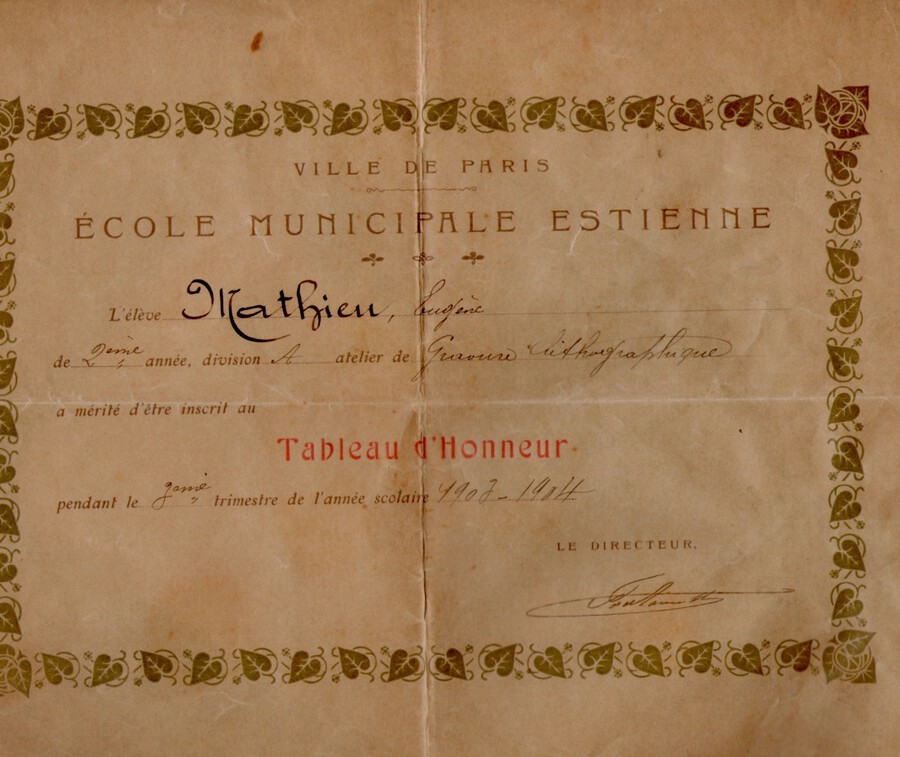 VILLE DE PARIS
ÉCOLE MUNICIPALE ESTIENNE
L'élève Mathieu, Eugène
de 2ème année, division A atelier de Gravure lithographique
a mérité d'être inscrit au
Tableau d'Honneur
pendant le trimestre de l'année scolaire 1903-1904
LE DIRECTEUR,